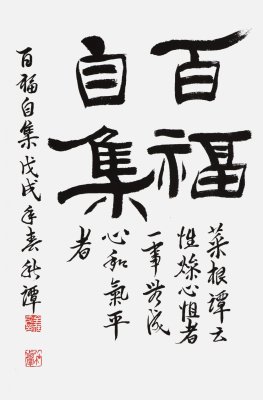 百福
自集
菜根譚云
性燥心粗者
一事無成
心和氣平
者
百福自集戊戌年春秋譚